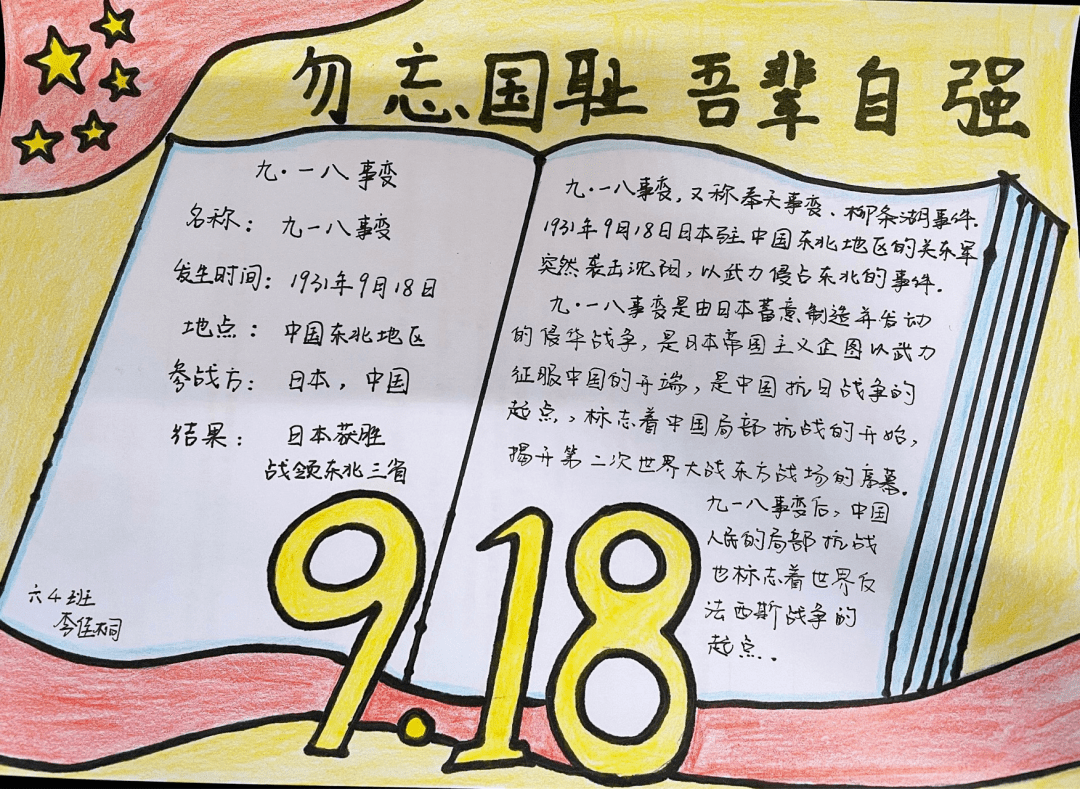 勿忘国耻 吾辈自强
九·一八事变
名称：九一八事变
发生时间：1931年9月18日
地点：中国东北地区
参战方：日本，中国
结果：日本获胜
战领东北三省
六4班
李佳桐
九·一八事变，又称奉天事变、柳条湖事件.
1931年9月18日日本驻中国东北地区的关东军
突然袭击沈阳，以武力侵占东北的事件.
九·一八事变是由日本蓄意制造并发动
的侵华战争，是日本帝国主义企图以武力
征服中国的开端，是中国抗日战争的
起点，标志着中国局部抗战的开始，
揭开第二次世界大战东方战场的序幕.
九一八事变后，中国
人民的局部抗战
也标志着世界反
法西斯战争的
起点..
9.18